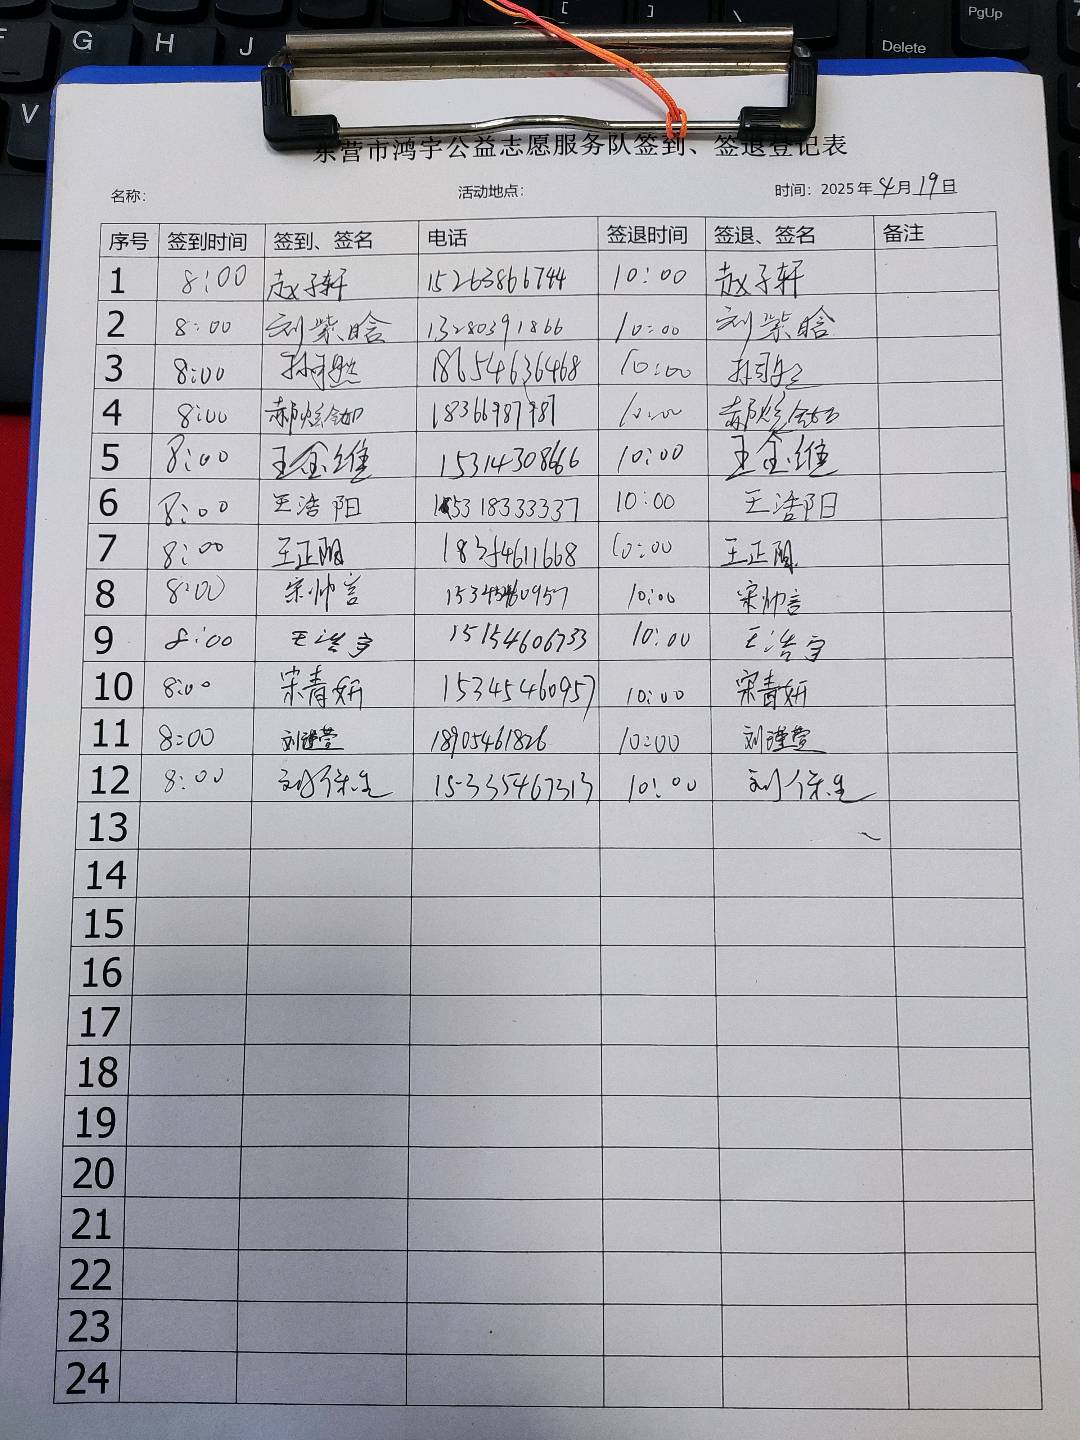 G H J
V
[ ] \ Delete PgUp
东营市鸿宇公益志愿服务队签到、签退登记表
名称: 活动地点: 时间: 2025年4月19日
序号 签到时间 签到、签名 电话 签退时间 签退、签名 备注
1 8:00 赵子轩 15263866744 10:00 赵子轩
2 8:00 刘紫晗 13280391866 10:00 刘紫晗
3 8:00 18654636468 10:00
4 8:00 郝 18366987987 10:00 郝
5 8:00 王金维 15314308666 10:00 王金维
6 8:00 王浩阳 15318333337 10:00 王浩阳
7 8:00 王正阳 18354611668 10:00 王正阳
8 8:00 宋帅言 15345460957 10:00 宋帅言
9 8:00 王浩宇 15154606733 10:00 王浩宇
10 8:00 宋青妍 15345460957 10:00 宋青妍
11 8:00 刘瑾萱 18905461826 10:00 刘瑾萱
12 8:00 刘 15335467313 10:00 刘
13
14
15
16
17
18
19
20
21
22
23
24